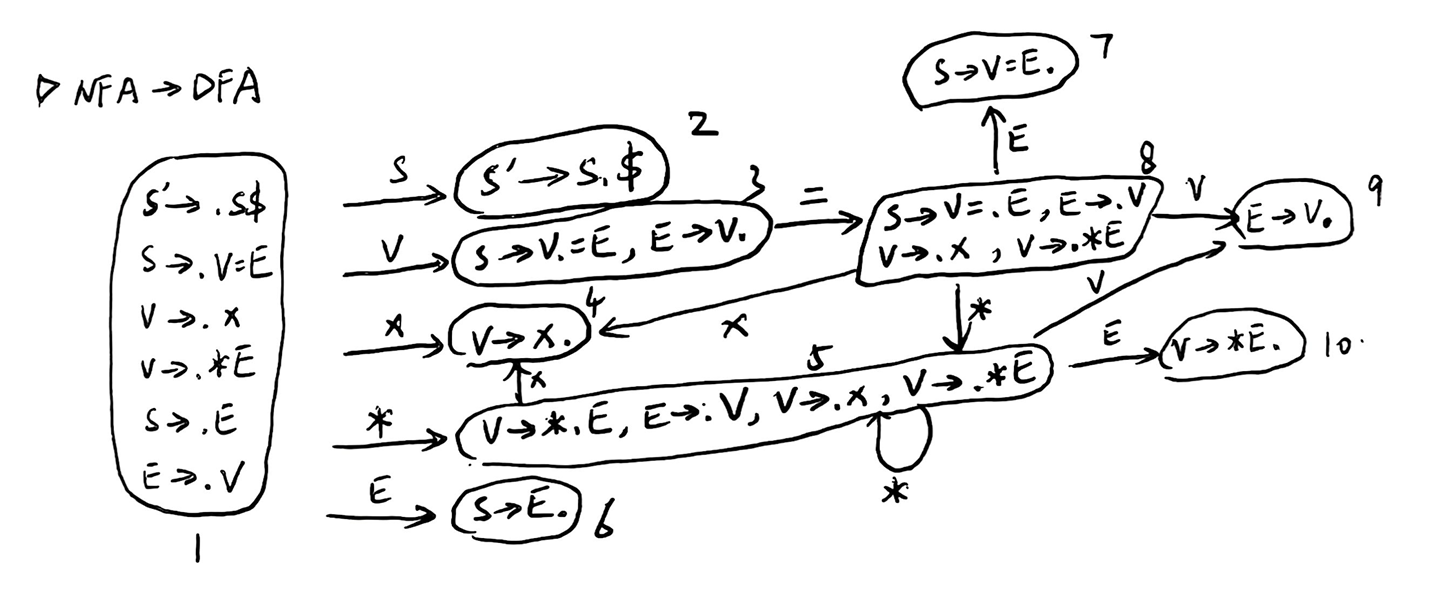 ▷ NFA → DFA
S' → .S$
S → .V=E
V → .x
V → .*E
S → .E
E → .V
1
S
S' → S.$
2
V
S → V.=E, E → V.
3
=
x
V → x.
4
x
*
V → *.E, E → .V, V → .x, V → .*E
5
*
E
S → E.
6
S → V=E.
7
E
S → V=.E, E → .V
V → .x, V → .*E
8
x
*
V
E → V.
9
V
E
V → *E.
10.